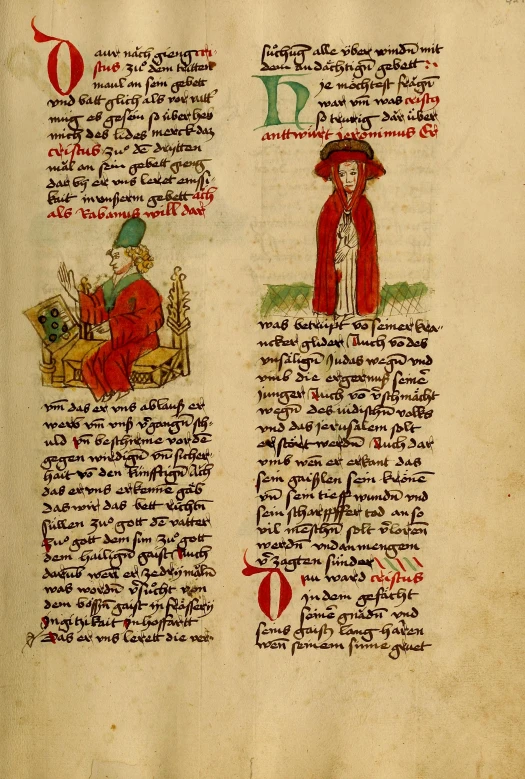 Dar nach gieng cri-
stus zuͦ dem tritten
maul an sein gebett
vnd batt glich als vor
es
mich des lides merck daz
cristus zuͦ dē dritten
mal an sein gebett gieng
dar by er vns leret emssi-
kait in vnserm gebett ach
als Rabanus will dar
vm̄ das er vns ablauß er
werb vm̄ vnß vˢgangn̄ sch-
uld vn̄ beschirme vor dē
gegen wirdign̄ vn̄ sicher-
hait vō den kinfftign̄ Ach
das er vns erkenne gāb
das wir das bett richtn̄
süllen zuͦ gott dē vatter
zuͦ gott dem sun zuͦ gott
dem hailign̄ gaist Auch
darūb wen er ze drij maln̄
was wordn̄ vˢsuͦcht von
dem bösn̄ gaist in frässerij
In gitikait In hoffartt
Das er vns lerett die ver-
suͦchug alle v̈ber windn̄ mit
dem andächtign̄ gebett
Hie möchtest frägn̄
war vm̄ was cristus
so trurig dar v̈ber
anttwürt jeronimus Er
was betrüpt vō seiner kra-
ncker glider Auch vō des
vnsälign̄ Judas wegn̄ vnd
vmb die ergernuß seinē
junger Auch vō vˢschmächt
wegn̄ des iudischn̄ volks
vnd das jerusalem solt
er stört werdn̄ Auch dar
vmb wen er erkant das
sein gaißlen sein krönē
vn̄ sein tieff wundn̄ vnd
sein scharpffer tod an so
vil meschn̄ solt vˢloren
werdn̄ vnd an mengem
vˢzagten sünder
Dau ward cristus
in dem gefächt
seinē gnädn̄ vnd
seins gaists lang
wen seinem sinne